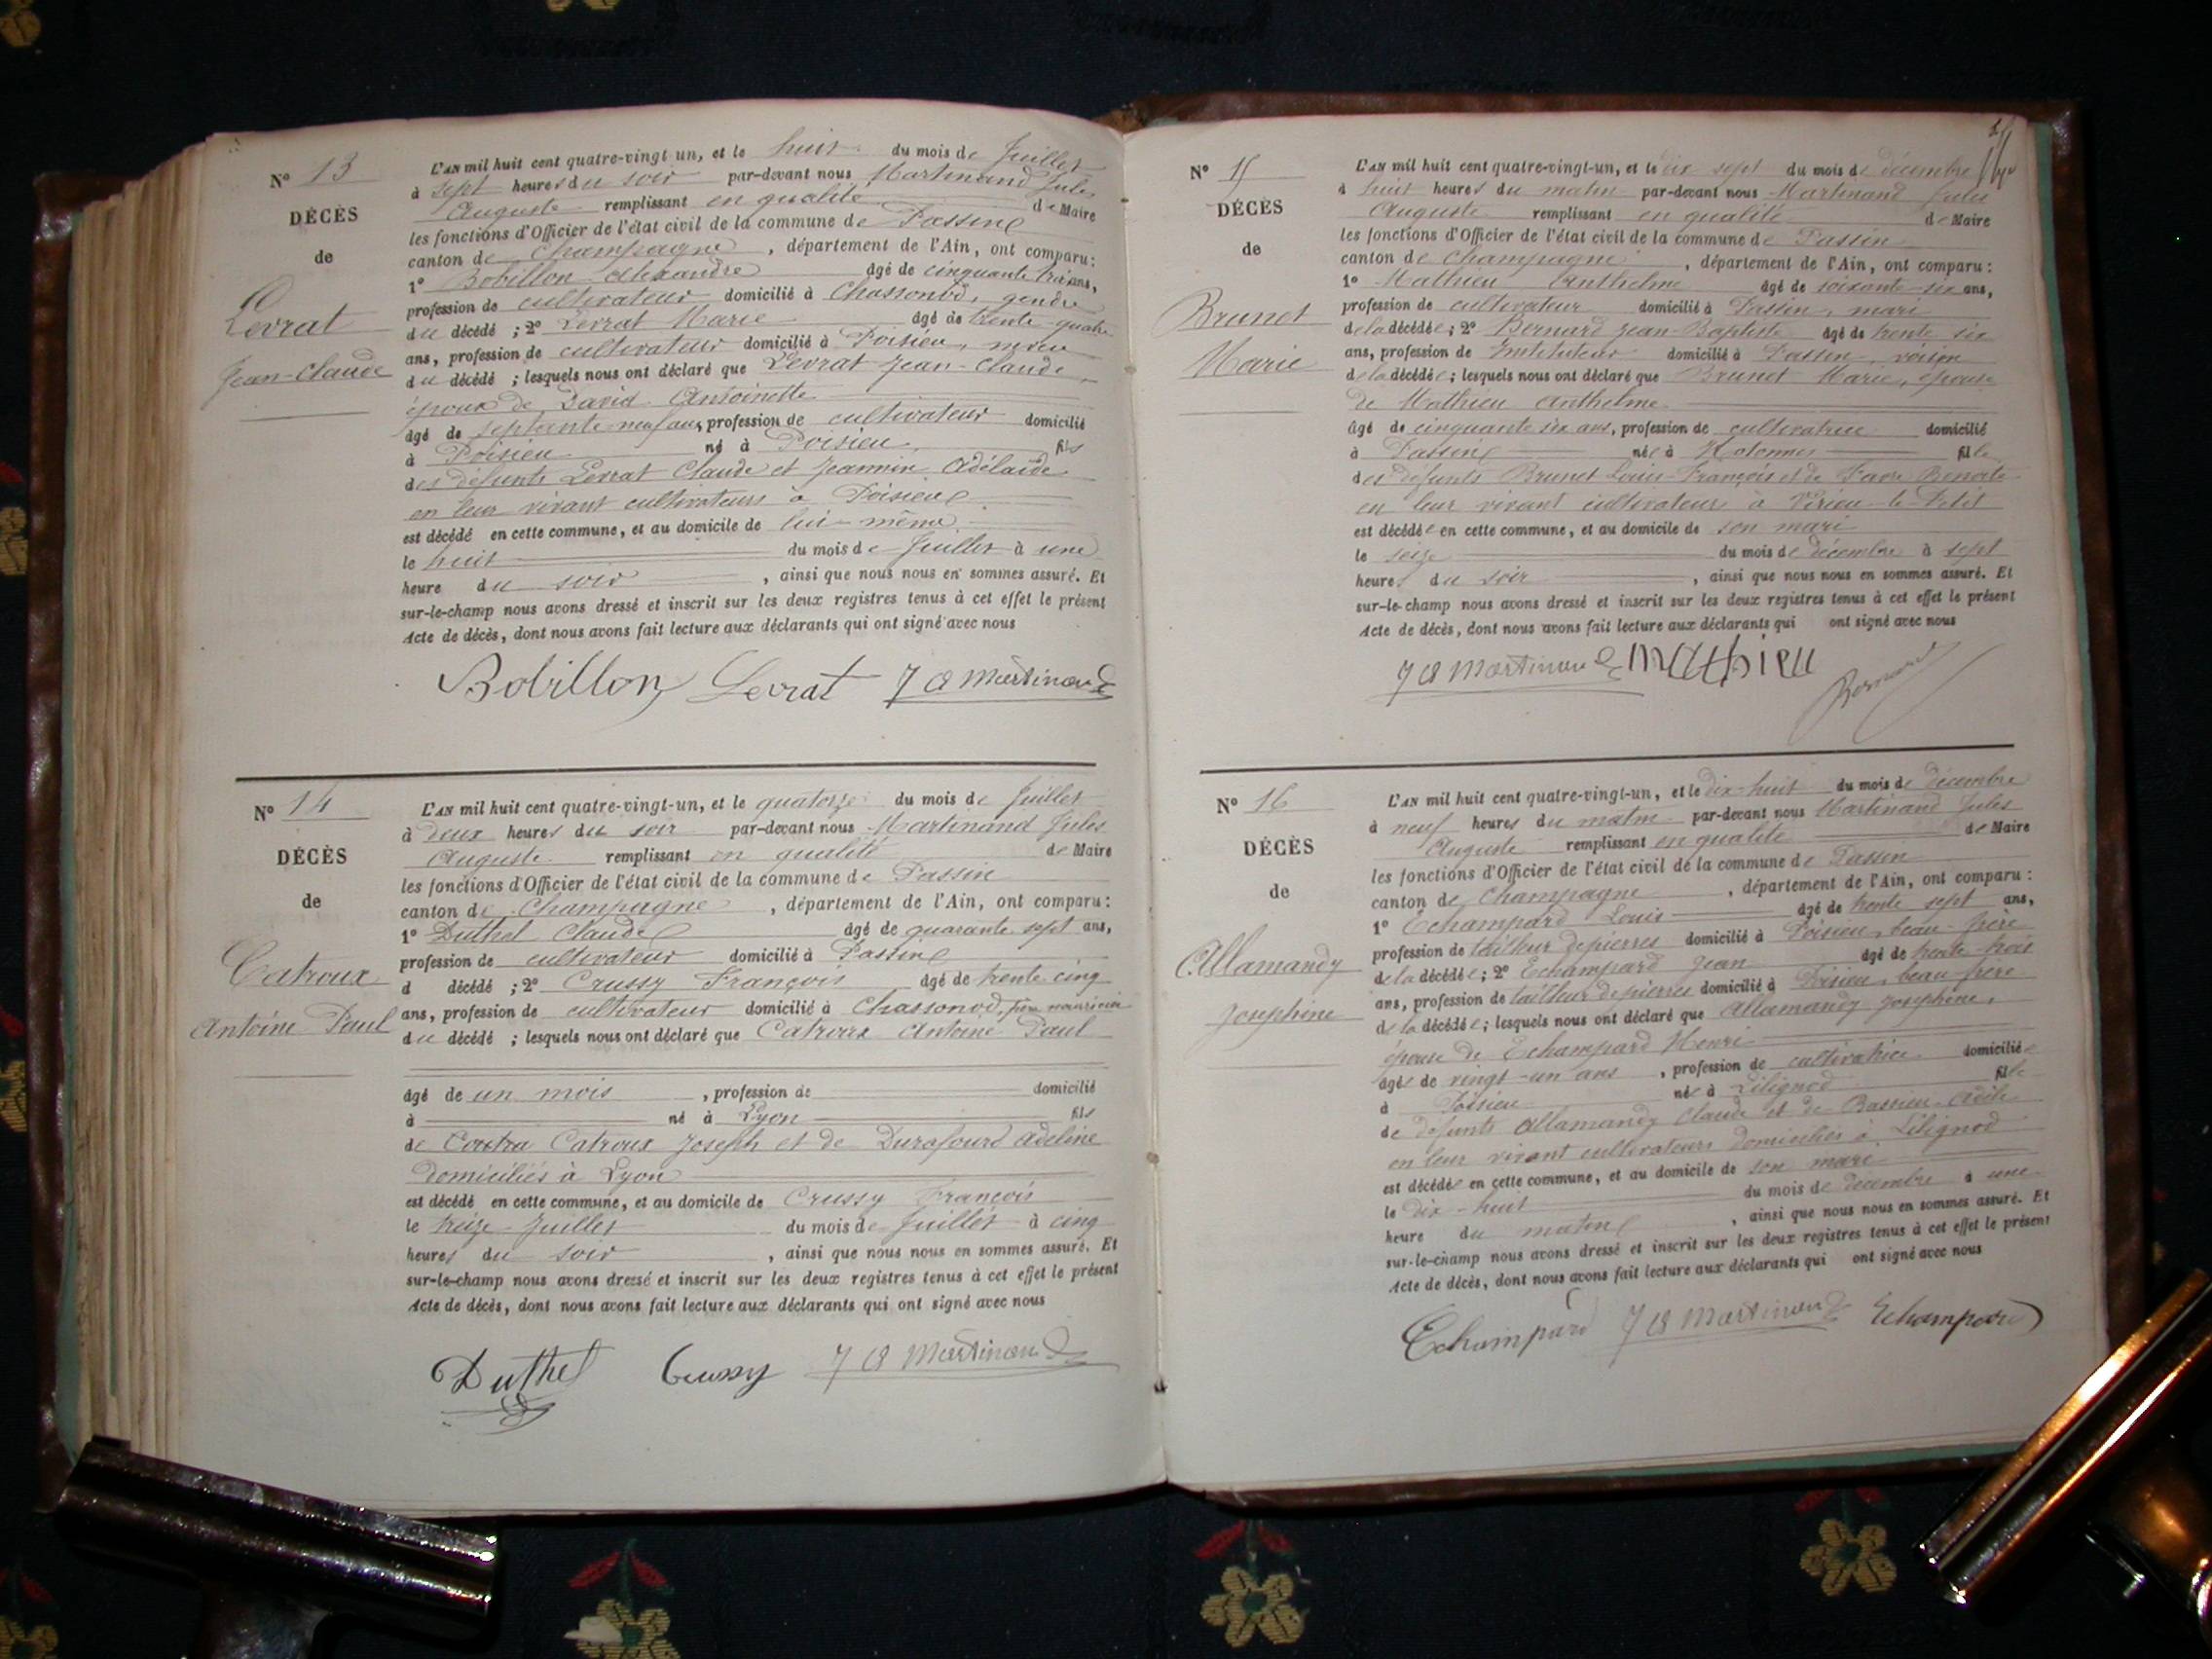 N° 13
DÉCÈS
de
Levrat
Jean-Claude
L'AN mil huit cent quatre-vingt un, et le huit du mois de Juillet
à sept heures du soir par-devant nous Martinand Jules
Auguste remplissant en qualité de Maire
les fonctions d'Officier de l'état civil de la commune de Passin
canton de Champagne, département de l'Ain, ont comparu:
1° Bobillon Alexandre âgé de cinquante trois ans,
profession de cultivateur domicilié à Chassonod, gendre
du décédé; 2° Levrat Marie âgé de trente-quatre
ans, profession de cultivateur domicilié à Poisieu, neveu
du décédé; lesquels nous ont déclaré que Levrat Jean-Claude,
époux de David Antoinette
âgé de septante neuf ans, profession de cultivateur domicilié
à Poisieu né à Poisieu fils
des défunts Levrat Claude et Jeannin Adélaïde
en leur vivant cultivateurs à Poisieu
est décédé en cette commune, et au domicile de lui-même
le huit du mois de Juillet à une
heure du soir, ainsi que nous nous en sommes assuré. Et
sur-le-champ nous avons dressé et inscrit sur les deux registres tenus à cet effet le présent
Acte de décès, dont nous avons fait lecture aux déclarants qui ont signé avec nous
Bobillon Levrat J A Martinand
N° 14
DÉCÈS
de
Catroux
Antoine Paul
L'AN mil huit cent quatre-vingt-un, et le quatorze du mois de Juillet
à deux heures du soir par-devant nous Martinand Jules
Auguste remplissant en qualité de Maire
les fonctions d'Officier de l'état civil de la commune de Passin
canton de Champagne, département de l'Ain, ont comparu:
1° Duthel Claude âgé de quarante sept ans,
profession de cultivateur domicilié à Passin
d décédé; 2° Crussy François âgé de trente cinq
ans, profession de cultivateur domicilié à Chassonod, père nourricier
du décédé; lesquels nous ont déclaré que Catroux Antoine Paul
âgé de un mois, profession de domicilié
à né à Lyon fils
de Catroux Joseph et de Durafourd Adeline
domiciliés à Lyon
est décédé en cette commune, et au domicile de Crussy François
le treize Juillet du mois de Juillet à cinq
heures du soir, ainsi que nous nous en sommes assuré. Et
sur-le-champ nous avons dressé et inscrit sur les deux registres tenus à cet effet le présent
Acte de décès, dont nous avons fait lecture aux déclarants qui ont signé avec nous
Duthel Crussy J A Martinand
N° 15
DÉCÈS
de
Brunet
Marie
L'AN mil huit cent quatre-vingt-un, et le dix sept du mois de décembre
à huit heures du matin par-devant nous Martinand Jules
Auguste remplissant en qualité de Maire
les fonctions d'Officier de l'état civil de la commune de Passin
canton de Champagne, département de l'Ain, ont comparu:
1° Mathieu Anthelme âgé de soixante-six ans,
profession de cultivateur domicilié à Passin, mari
de la décédée; 2° Bernard Jean-Baptiste âgé de trente six
ans, profession de Instituteur domicilié à Passin, voisin
de la décédée; lesquels nous ont déclaré que Brunet Marie, épouse
de Mathieu Anthelme
âgé de cinquante six ans, profession de cultivatrice domicilié
à Passin née à Hotonnes fille
des défunts Brunet Louis-François et de Favre Benoite
en leur vivant cultivateurs à Virieu-le-Petit
est décédée en cette commune, et au domicile de son mari
le seize du mois de décembre à sept
heures du soir, ainsi que nous nous en sommes assuré. Et
sur-le-champ nous avons dressé et inscrit sur les deux registres tenus à cet effet le présent
Acte de décès, dont nous avons fait lecture aux déclarants qui ont signé avec nous
J A Martinand Mathieu Bernard
N° 16
DÉCÈS
de
Allamandy
Joséphine
L'AN mil huit cent quatre-vingt-un, et le dix-huit du mois de décembre
à neuf heures du matin par-devant nous Martinand Jules
Auguste remplissant en qualité de Maire
les fonctions d'Officier de l'état civil de la commune de Passin
canton de Champagne, département de l'Ain, ont comparu:
1° Echampard Louis âgé de trente sept ans,
profession de tailleur de pierres domicilié à Poisieu, beau-frère
de la décédée; 2° Echampard Jean âgé de trente-trois
ans, profession de tailleur de pierres domicilié à Poisieu, beau-frère
de la décédée; lesquels nous ont déclaré que Allamandy Joséphine,
épouse de Echampard Henri
âgée de vingt-un ans, profession de cultivatrice domiciliée
à Poisieu née à Lilignod fille
de défunts Allamandy Claude et de Bassieu Adèle
en leur vivant cultivateurs domiciliés à Lilignod
est décédée en cette commune, et au domicile de son mari
le dix-huit du mois de décembre à une
heure du matin, ainsi que nous nous en sommes assuré. Et
sur-le-champ nous avons dressé et inscrit sur les deux registres tenus à cet effet le présent
Acte de décès, dont nous avons fait lecture aux déclarants qui ont signé avec nous
Echampard J A Martinand Echampard